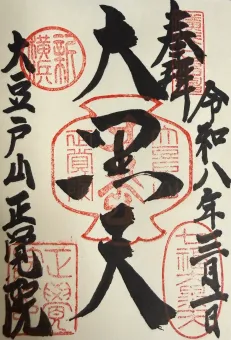 奉拝
令和八年三月一日
大黒天
新横浜
大豆戸山正覚院